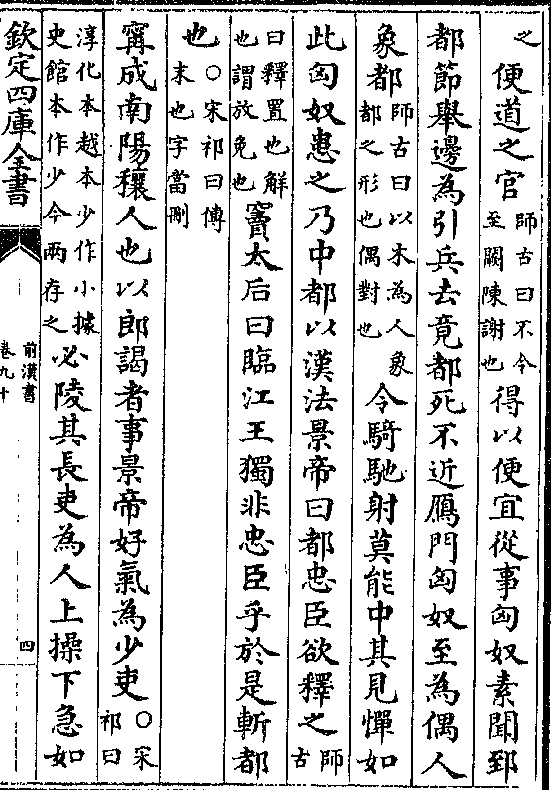 之便道之官師古曰不令至闕陳謝也得以便宜從事匈奴素聞郅
都節舉邊為引兵去竟都死不近鴈門匈奴至為偶人
象都師古曰以木為人象都之形也偶對也令騎馳射莫能中其見憚如
此匈奴患之乃中都以漢法景帝曰都忠臣欲釋之師古
曰釋置也解也謂放免也竇太后曰臨江王獨非忠臣乎於是斬都
也○宋祁曰傳末也字當刪
甯成南陽穰人也以郎謁者事景帝好氣為少吏○宋祁曰
淳化本越本少作小據史館本作少今兩存之必陵其長吏為人上操下急如
欽定四庫全書
前漢書
卷九十
四